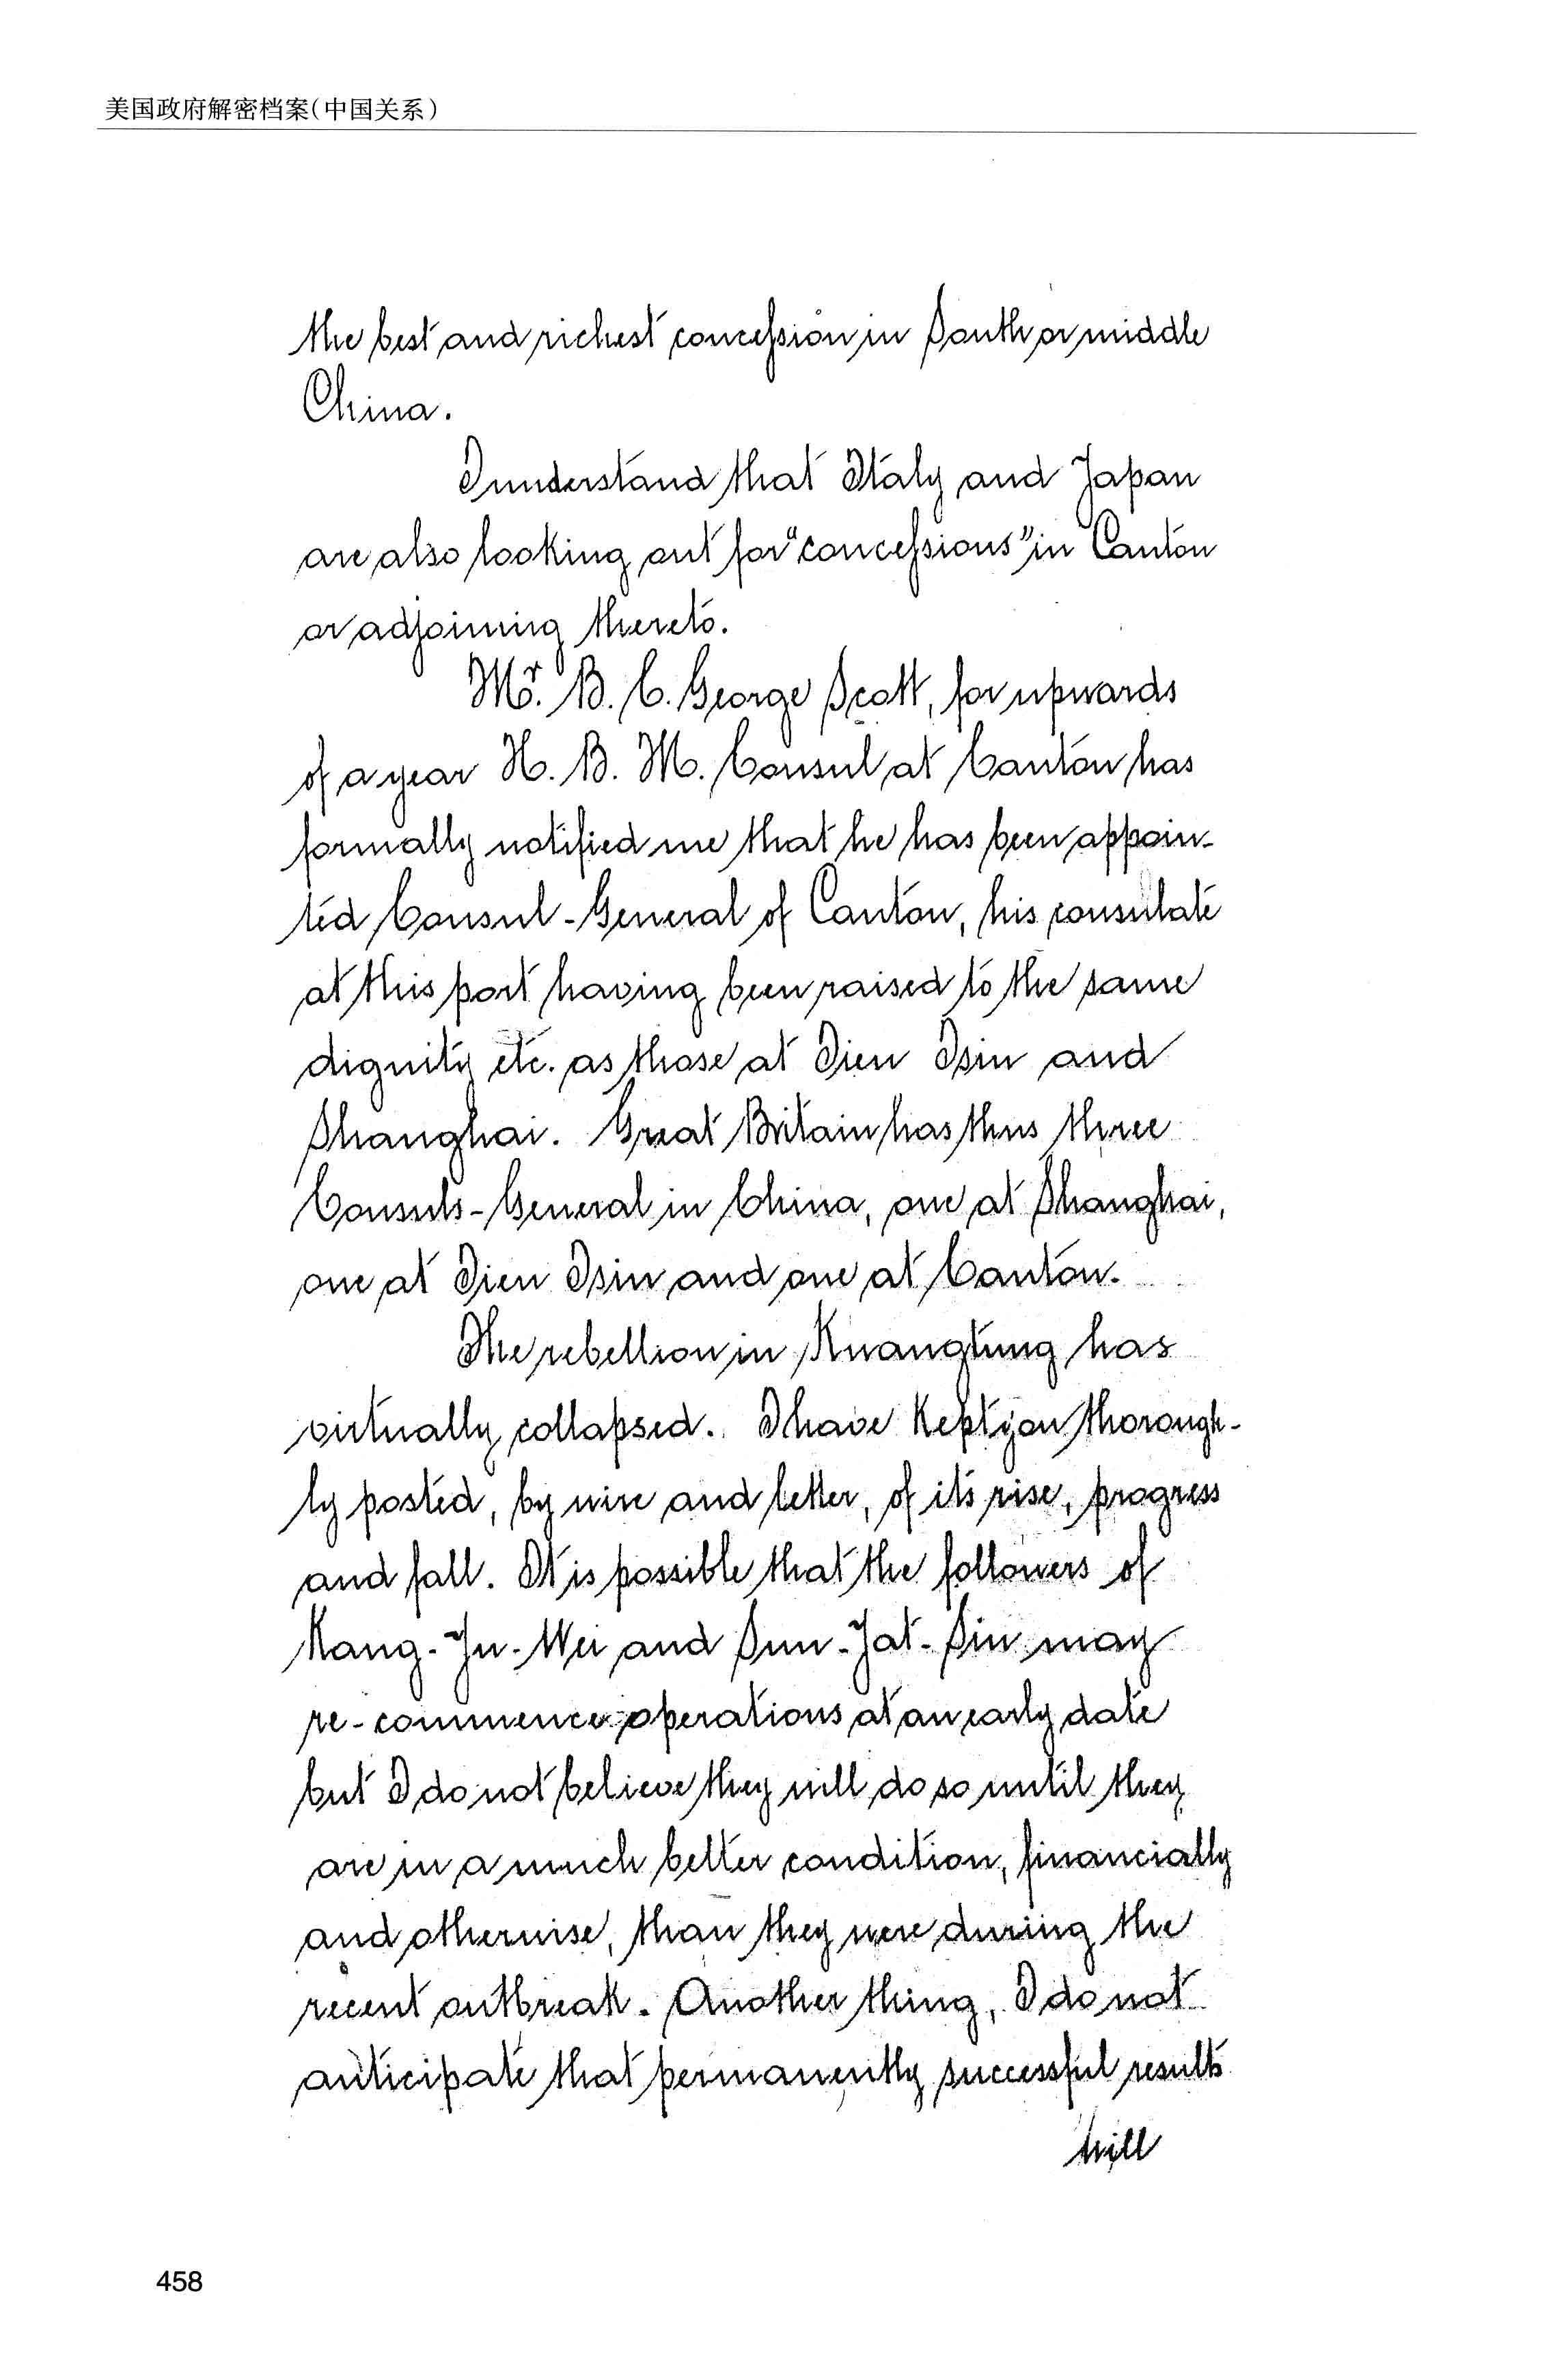 美国政府解密档案(中国关系)
the best and richest concession in South or middle
China.
I understand that Italy and Japan
are also looking out for "concessions" in Canton
or adjoining thereto.
Mr. B. C. George Scott, for upwards
of a year H. B. M. Consul at Canton has
formally notified me that he has been appoin-
ted Consul-General of Canton, his consulate
at this port having been raised to the same
dignity etc. as those at Tien Tsin and
Shanghai. Great Britain has thus three
Consuls-General in China, one at Shanghai,
one at Tien Tsin and one at Canton.
The rebellion in Kuangtung has
virtually collapsed. I have kept you thorough-
ly posted, by wire and letter, of its rise, progress
and fall. It is possible that the followers of
Kang-Yu-Wei and Sun-Yat-Sin may
re-commence operations at an early date
but I do not believe they will do so until they
are in a much better condition, financially
and otherwise, than they were during the
recent outbreak. Another thing, I do not
anticipate that permanently successful results
will
458